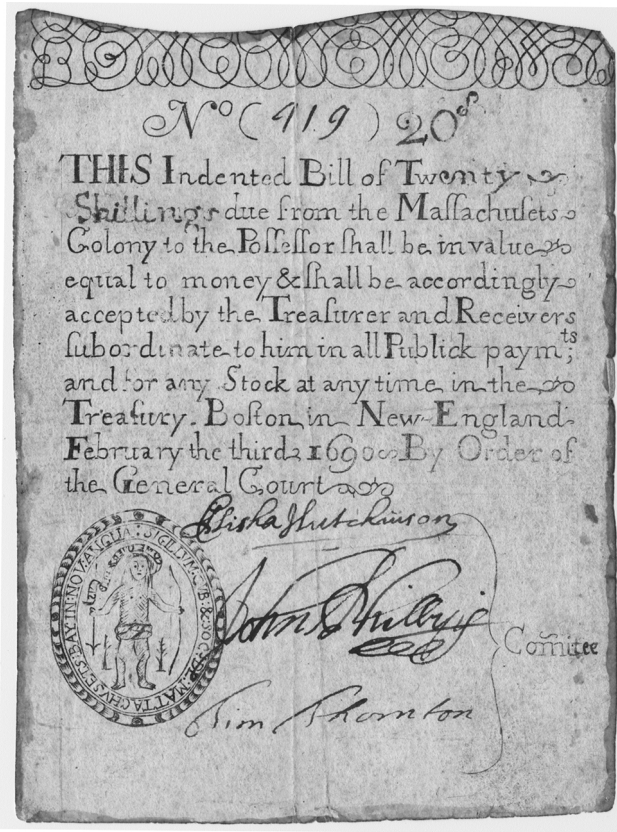 No (919) 20s
THIS Indented Bill of Twenty
Shillings due from the Massachusets
Colony to the Poſſeſſor ſhall be in value
equal to money & ſhall be accordingly
accepted by the Treaſurer and Receivers
ſubordinate to him in all Publick paymts;
and for any Stock at any time in the
Treaſury. Boſton in New-England
February the third 1690 By Order of
the General Court
Elisha Hutchinson
John Phillips
Tim Thornton
Comitee
SIGILLUM: GUB: & SOC: DE: MATTACHVSETS: BAY: IN: NOV: ANGLIA: